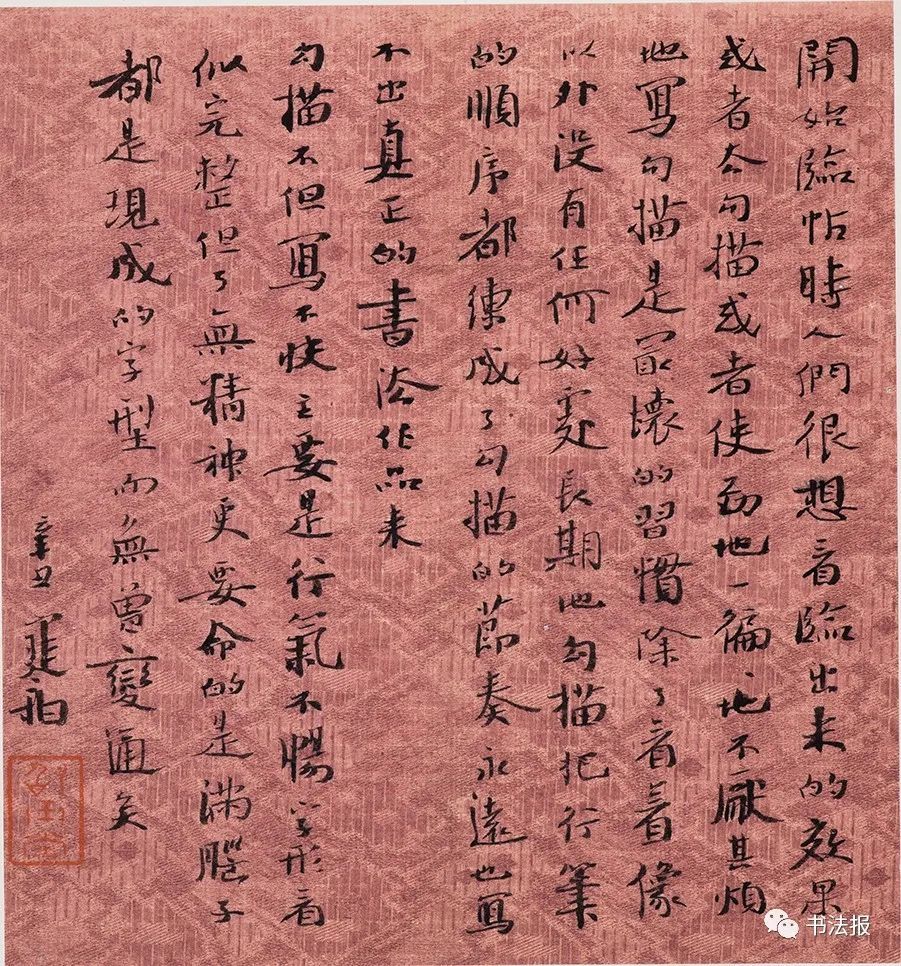 開始臨帖時人們很想看臨出来的效果
或者去勾描或者使劲地一徧丶地不厭其煩
地寫勾描是最壞的習慣除了看着像
以外没有任何好處長期地勾描把行筆
的順序都練成了勾描的節奏永遠也寫
不出真正的書法作品来
勾描不但寫不快主要是行氣不暢字形看
似完整但了無精神更要命的是满腦子
都是現成的字型而無曾變通矣
辛丑
书法报